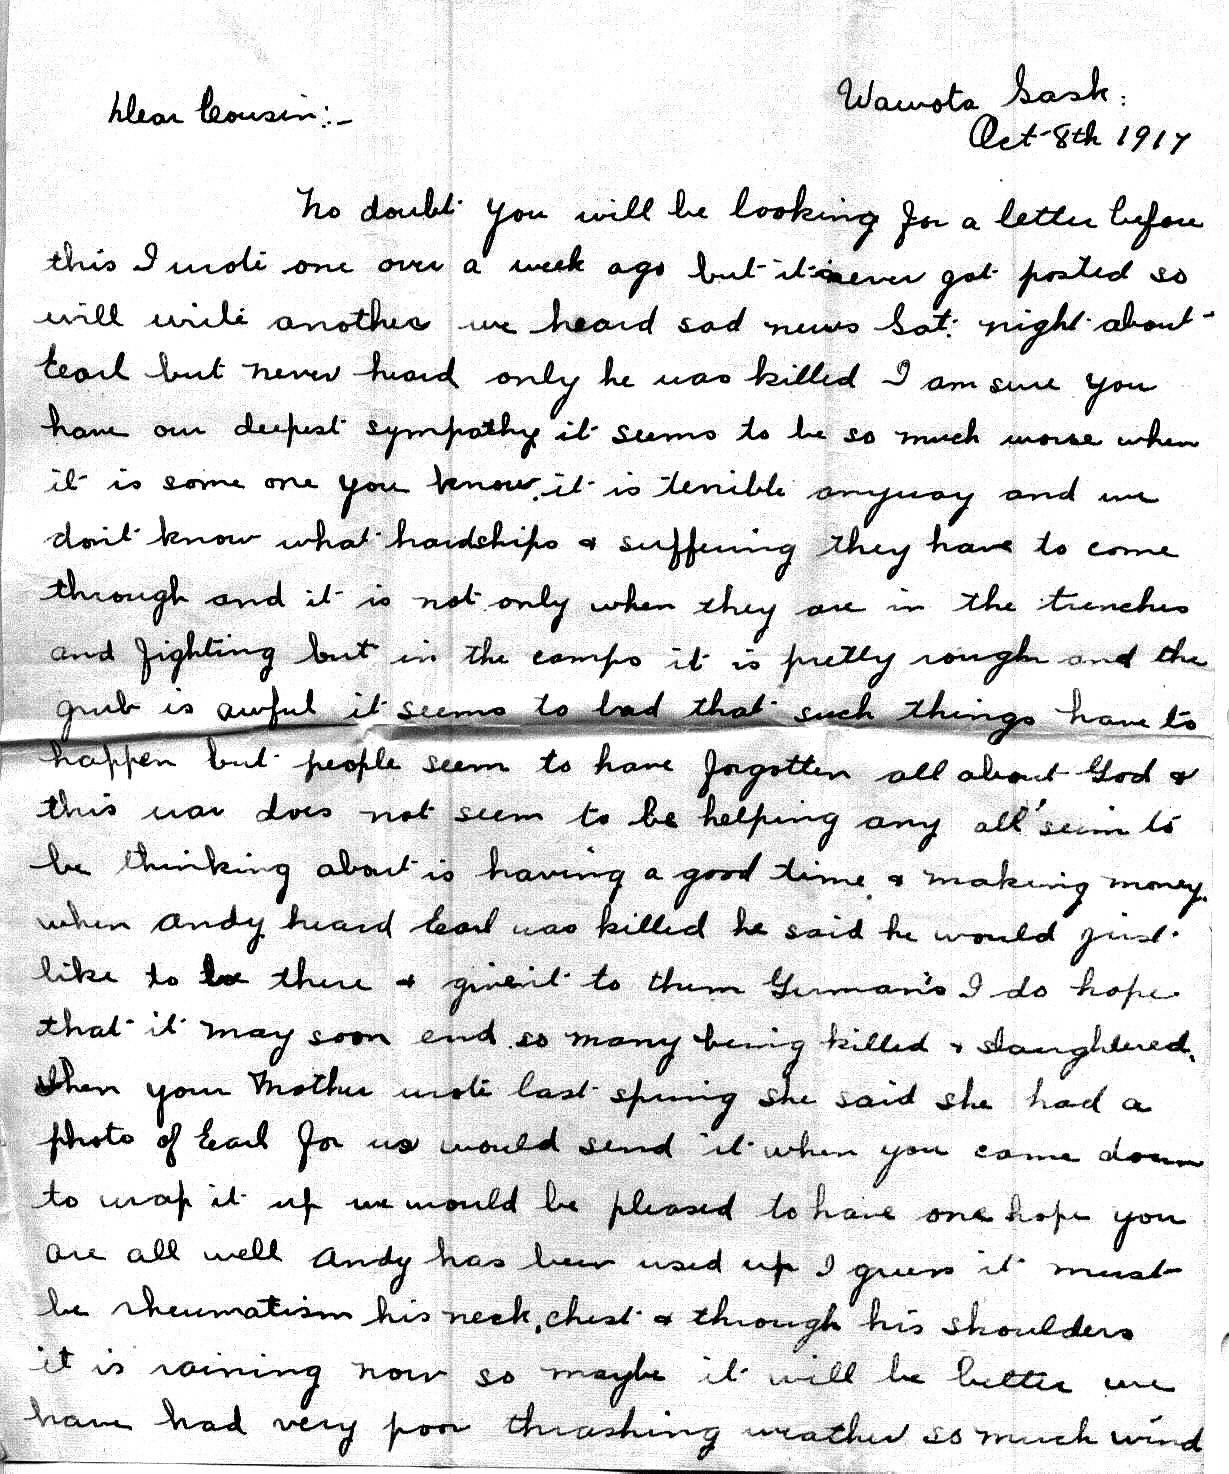 Wawota Sask:
Dear Cousin:-
Oct 8th 1917
No doubt you will be looking for a letter before
this I wrote one over a week ago but it never got posted so
will write another we heard sad news Sat. night about
Earl but never heard only he was killed I am sure you
have our deepest sympathy it seems to be so much worse when
it is some one you know. it is terrible anyway and we
don't know what hardships & suffering they have to come
through and it is not only when they are in the trenches
and fighting but in the camps it is pretty rough and the
grub is awful it seems to bad that such things have to
happen but people seem to have forgotten all about God &
this war does not seem to be helping any all seem to
be thinking about is having a good time & making money.
when Andy heard Earl was killed he said he would just
like to be there & give it to them German's I do hope
that it may soon end so many being killed & slaughtered.
When your Mother wrote last spring she said she had a
photo of Earl for us would send it when you came down
to wrap it up we would be pleased to have one hope you
are all well Andy has been used up I guess it must
be rheumatism his neck, chest & through his shoulders
it is raining now so maybe it will be better we
have had very poor thrashing weather so much wind